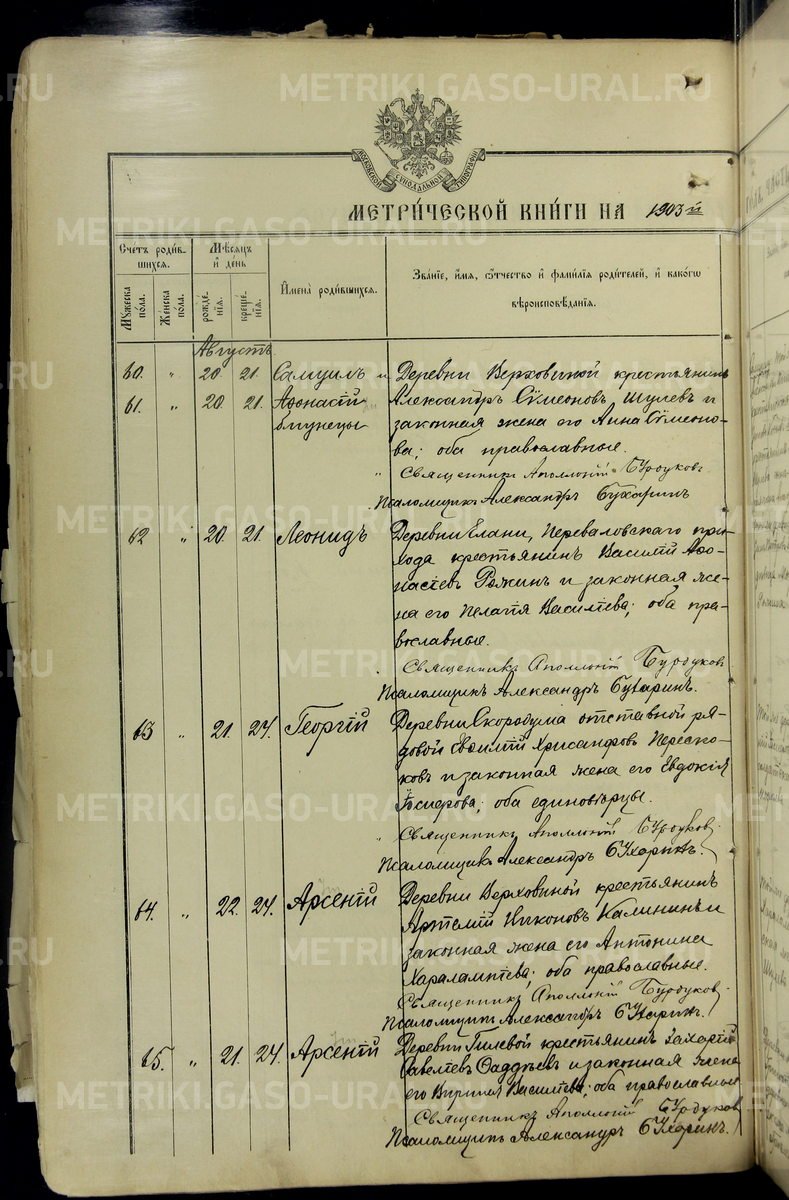 МОСКОВСКОЙ СУНОДАЛЬНОЙ ТИПОГРАФІИ
МЕТРИ́ЧЕСКОЙ КНИ́ГИ НА 1903й
Сче́тъ роди́в-
шихся.
Мꙋ́жеска по́ла.
Же́нска по́ла.
Мѣ́сяцъ
и҆ де́нь
рожде́-
нїѧ.
креще́-
нїѧ.
И҆мена̀ роди́вшихся.
Зва́нїе, и҆́мѧ, ѻ҆́тчество и҆ фами́лїѧ роди́телей, и҆ како́гѡ
вѣроисповѣ́данїѧ.
Августъ
60. " 20 21. Самуилъ и Деревни Верховиной крестьянинъ
61. " 20 21. Аѳонасій Александръ Сѵмеоновъ, Шулевъ и
близнецы законная жена его Анна Сѵмеоно-
ва; оба православные.
" Священникъ Аполлоній Бурдуковъ
Псаломщикъ Александръ Бухаринъ
62 " 20 21. Леонидъ Деревни Елани, Переваловскаго при-
хода крестьянинъ Василій Аѳо-
насіевъ Рожинъ и законная же-
на его Пелагія Василіева; оба пра-
вославные.
Священникъ Аполлоній Бурдуковъ
Псаломщикъ Александръ Бухаринъ.
63 " 21. 24. Георгій Деревни Скородума отставной ря-
довой Евѳимій Хрисанфовъ
и законная жена его Евдокія
оба единовѣрцы.
" Священникъ Аполлоній Бурдуковъ.
Псаломщикъ Александръ Бухаринъ.
64. " 22. 24. Арсеній Деревни Верховиной крестьянинъ
Артемій Никоновъ Калининъ и
законная жена его Антонина
Харалампіева; оба православные.
Священникъ Аполлоній Бурдуковъ
Псаломщикъ Александръ Бухаринъ.
65. " 21. 24. Арсеній Деревни Гилевой крестьянинъ Захарій
Савеліевъ Ѳаддѣевъ и законная жена
его Василіева; оба православные
Священникъ Аполлоній Бурдуковъ
Псаломщикъ Александръ Бухаринъ.
METRIKI.GASO-URAL.RU